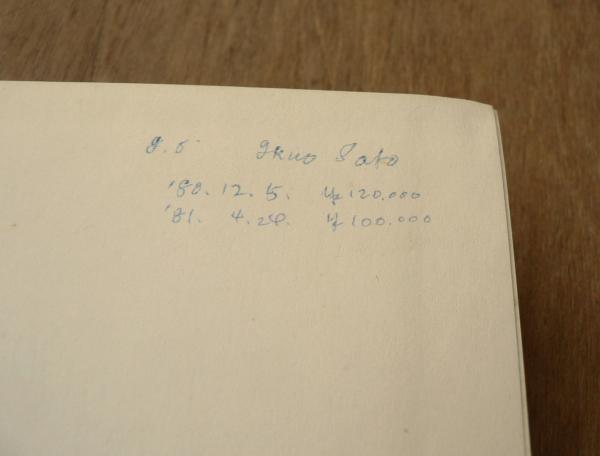 Ikuo Sato
'80. 12. 5. ¥120.000
'81. 4.24. ¥100.000